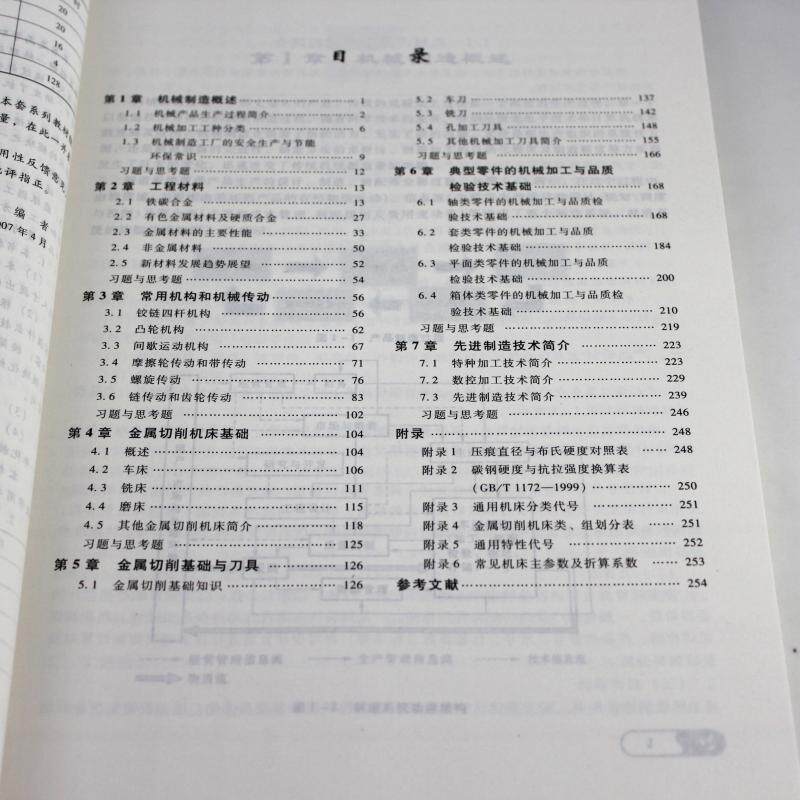 时
20
20
16
4
128
本套系列教材
量，在此一并
用性反馈意见
批评指正。
编 者
2007年4月
目 录
第1章 机械制造概述 …… 1
1.1 机械产品生产过程简介 …… 2
1.2 机械加工工种分类 …… 6
1.3 机械制造工厂的安全生产与节能
环保常识 …… 9
习题与思考题 …… 12
第2章 工程材料 …… 13
2.1 铁碳合金 …… 13
2.2 有色金属材料及硬质合金 …… 27
2.3 金属材料的主要性能 …… 33
2.4 非金属材料 …… 50
2.5 新材料发展趋势展望 …… 52
习题与思考题 …… 54
第3章 常用机构和机械传动 …… 56
3.1 铰链四杆机构 …… 56
3.2 凸轮机构 …… 62
3.3 间歇运动机构 …… 67
3.4 摩擦轮传动和带传动 …… 71
3.5 螺旋传动 …… 76
3.6 链传动和齿轮传动 …… 83
习题与思考题 …… 102
第4章 金属切削机床基础 …… 104
4.1 概述 …… 104
4.2 车床 …… 106
4.3 铣床 …… 111
4.4 磨床 …… 115
4.5 其他金属切削机床简介 …… 118
习题与思考题 …… 125
第5章 金属切削基础与刀具 …… 126
5.1 金属切削基础知识 …… 126
5.2 车刀 …… 137
5.3 铣刀 …… 142
5.4 孔加工刀具 …… 148
5.5 其他机械加工刀具简介 …… 155
习题与思考题 …… 166
第6章 典型零件的机械加工与品质
检验技术基础 …… 168
6.1 轴类零件的机械加工与品质检
验技术基础 …… 168
6.2 套类零件的机械加工与品质
检验技术基础 …… 184
6.3 平面类零件的机械加工与品质
检验技术基础 …… 200
6.4 箱体类零件的机械加工与品质检
验技术基础 …… 210
习题与思考题 …… 219
第7章 先进制造技术简介 …… 223
7.1 特种加工技术简介 …… 223
7.2 数控加工技术简介 …… 229
7.3 先进制造技术简介 …… 239
习题与思考题 …… 246
附录 …… 248
附录1 压痕直径与布氏硬度对照表 …… 248
附录2 碳钢硬度与抗拉强度换算表
(GB/T 1172—1999) …… 250
附录3 通用机床分类代号 …… 251
附录4 金属切削机床类、组划分表 …… 251
附录5 通用特性代号 …… 252
附录6 常见机床主参数及折算系数 …… 253
参考文献 …… 254